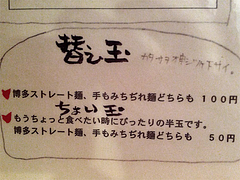 替え玉
博多ストレート麺、手もみちぢれ麺どちらも 100円
ちょい玉
もうちょっと食べたい時にぴったりの半玉です。
博多ストレート麺、手もみちぢれ麺どちらも 50円